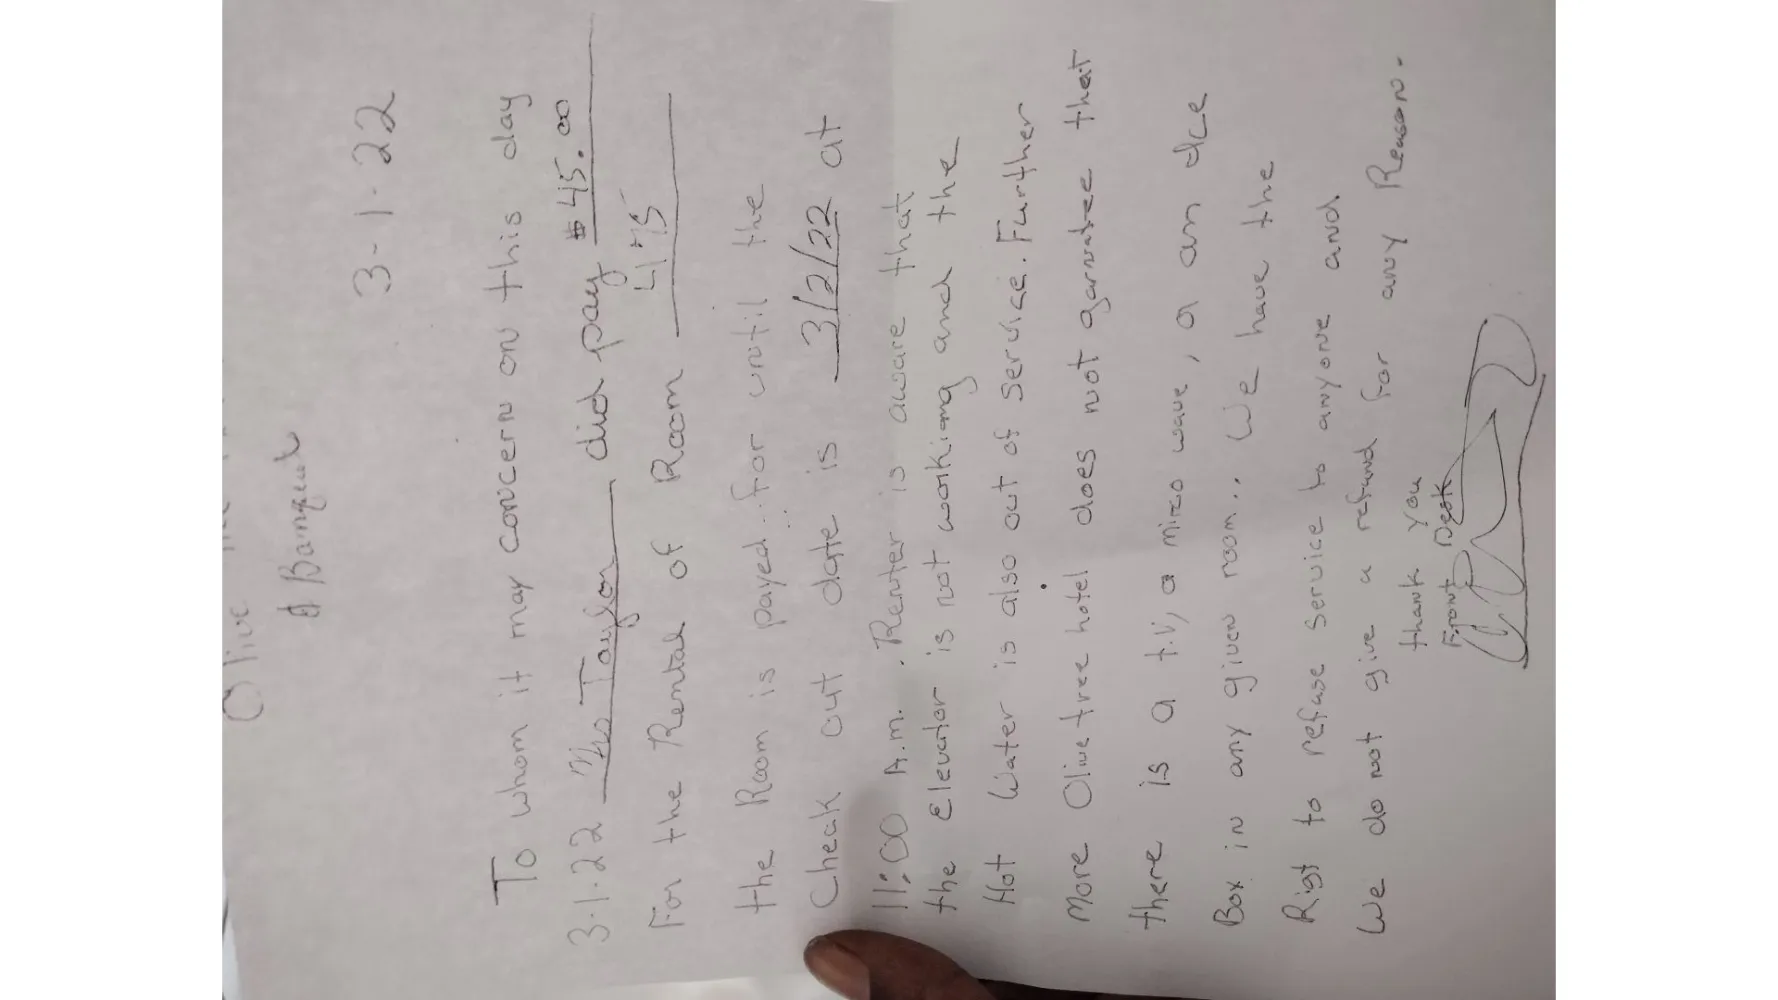 Olive
& Banquet
3-1-22
To whom it may concern on this day
3.1.22 Taylor did pay $45.00
For the Rental of Room 475
the Room is payed for until the
Cheak out date is 3/2/22 at
11:00 A.m. Renter is aware that
the Elevator is not working and the
Hot Water is also out of service. Further
More Olive tree hotel does not garnatee that
there is a t.v, a mirco wave, a an Ice
Box in any given room... We have the
Rigt to refuse service to anyone and
We do not give a refund for any Reason.
thank you
Front Desk